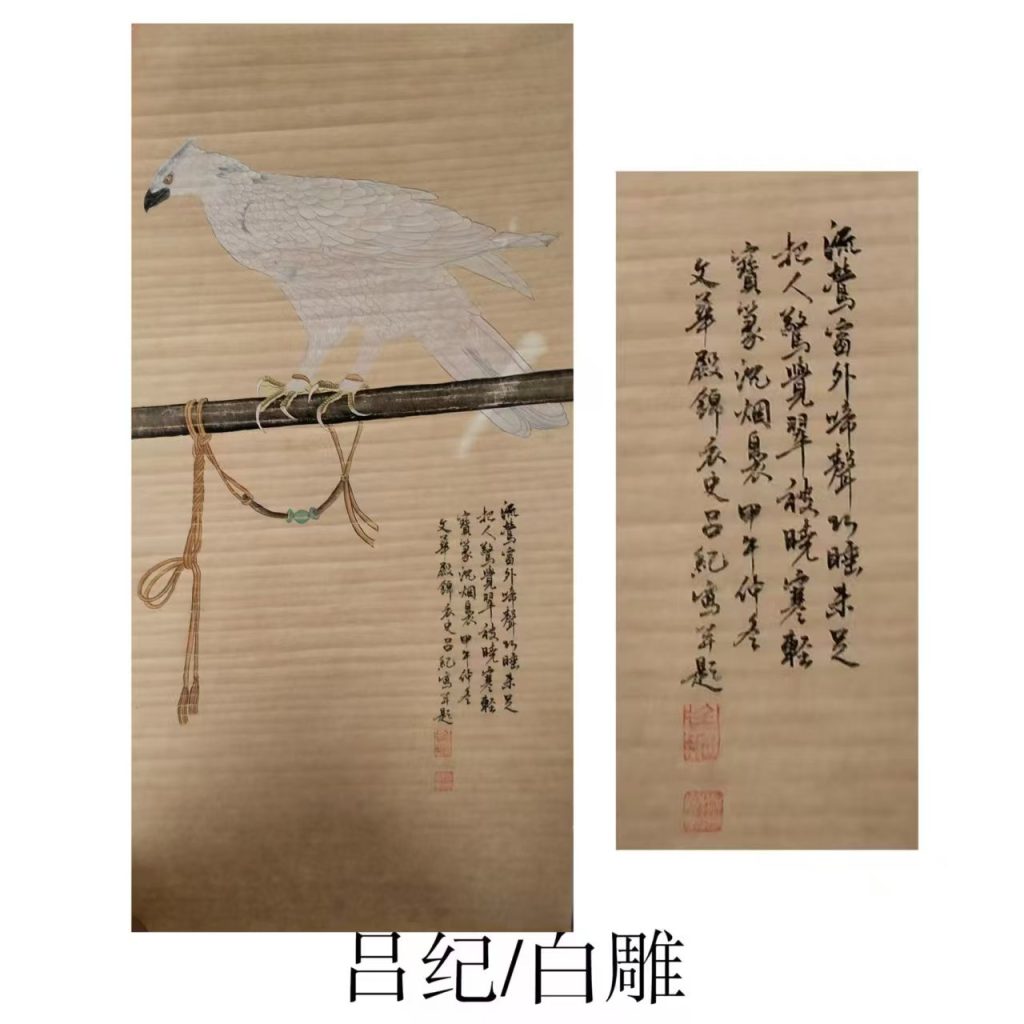 流鶯窗外啼聲巧睡未足
把人驚覺翠被曉寒輕
寶篆沉烟裊 甲午仲冬
文華殿錦衣史呂紀寫并題
流鶯窗外啼聲巧睡未足
把人驚覺翠被曉寒輕
寶篆沉烟裊 甲午仲冬
文華殿錦衣史呂紀寫并題
吕纪/白雕